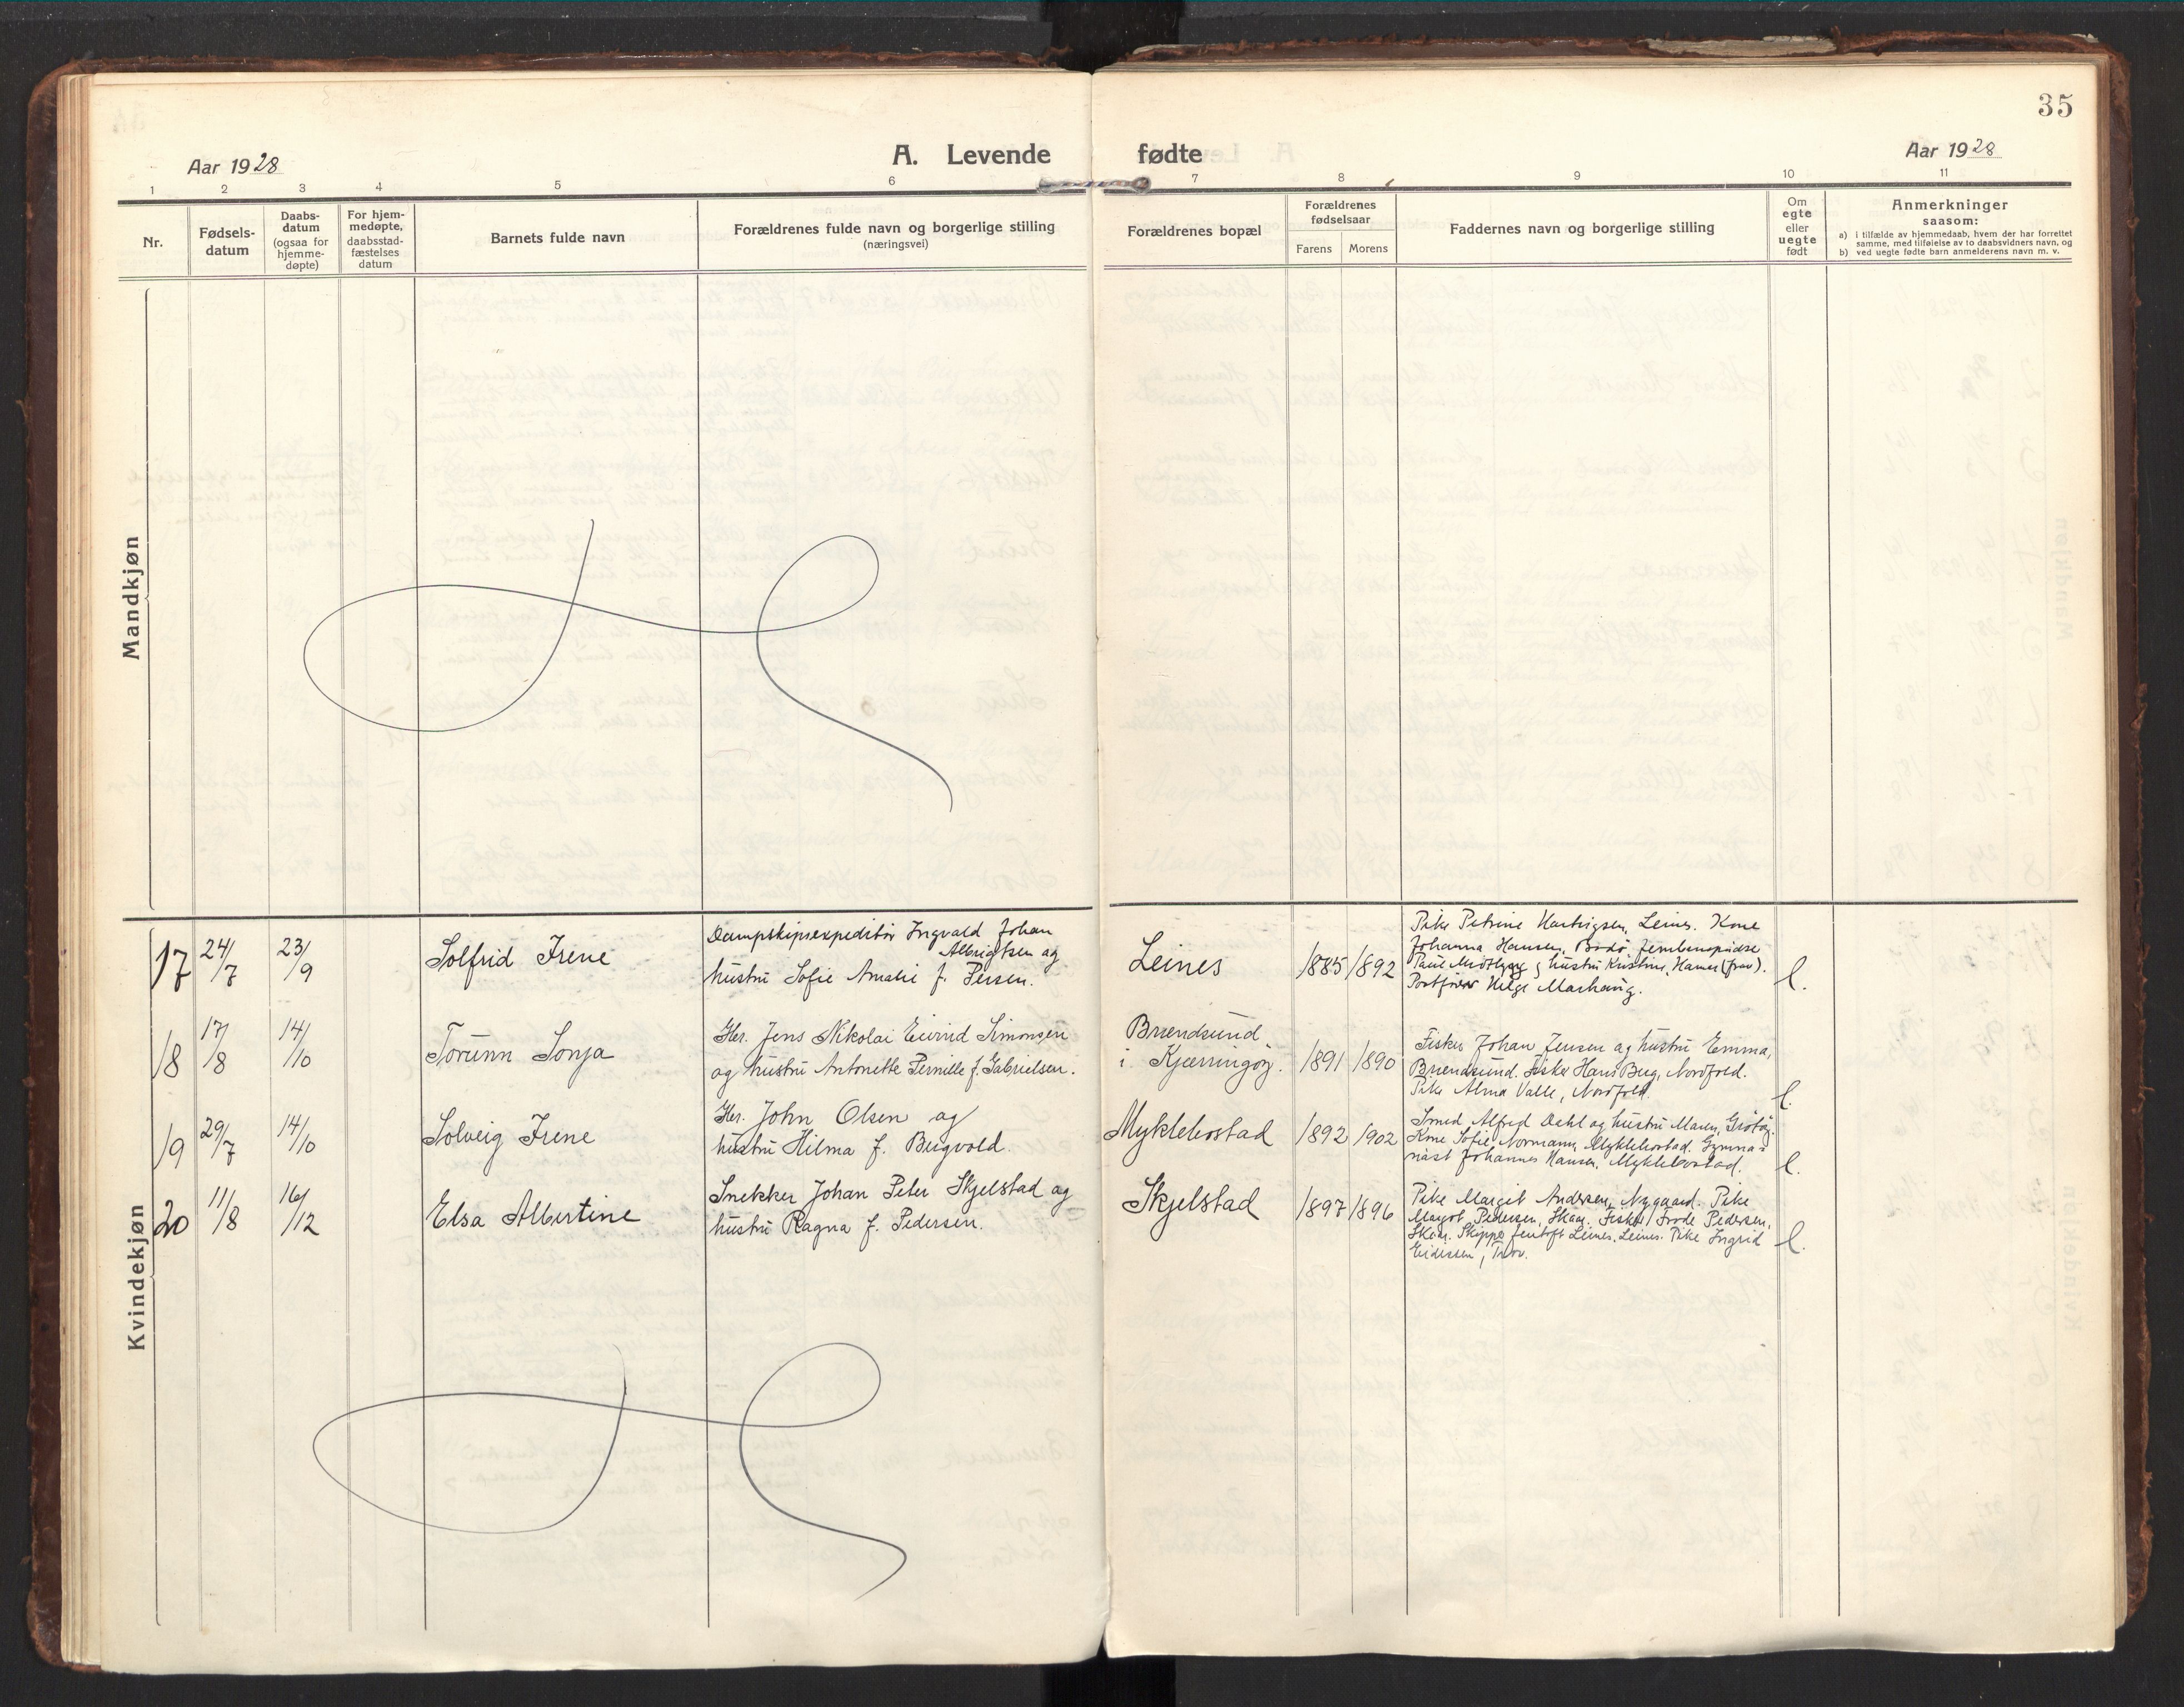 35
Aar 1928
A. Levende fødte
Aar 1928
1 2 3 4 5 6 7 8 9 10 11
Nr.
Fødsels-
datum
Daabs-
datum
(ogsaa for
hjemme-
døpte)
For hjem-
medøpte,
daabsstad-
fæstelses
datum
Barnets fulde navn
Forældrenes fulde navn og borgerlige stilling
(næringsvei)
Forældrenes bopæl
Forældrenes
fødselsaar
Farens Morens
Faddernes navn og borgerlige stilling
Om
egte
eller
uegte
født
Anmerkninger
saasom:
a) i tilfælde av hjemmedaab, hvem der har forrettet
samme, med tilføielse av to daabsvidners navn, og
b) ved uegte fødte barn anmelderens navn m. v.
Mandkjøn
Kvindekjøn
17 24/7 23/9 Solfrid Irene
Dampskipsexpeditør Ingvald Johan
Albrigtsen og
hustru Sofie Amalie f. Persen.
Leines 1885 1892
Pike Petrine Hartvigsen, Leines. Kone
Johanna Hansen, Bodø,
hustru Kristine, Hamer (frav).
Postfører Helge Marhaug.
e.
18 17/8 14/10 Torunn Sonja
Gbr. Jens Nikolai Eivind Simonsen
og hustru Antonette Pernille f. Gabrielsen.
Bruendsund
i Kjærringøy. 1891 1890
Fisker Johan Jensen og hustru Emma,
Bruendsund. Fisker Hans Berg, Nordfold.
Pike Alma Valle, Nordfold.
e.
19 29/7 14/10 Solveig Irene
Gbr. John Olsen og
hustru Hilma f. Bergvold.
Myklebostad 1892 1902
Smed Alfred Dahl og hustru Maren, Grøtøy.
Kone Sofie Normann, Myklebostad. Gymna-
siast Johannes Hansen, Myklebostad.
e.
20 11/8 16/12 Elsa Albertine
Snekker Johan Peter Skjelstad og
hustru Ragna f. Pedersen.
Skjelstad 1897 1896
Pike Margit Andersen, Nygaard. Pike
Margot Pedersen, Skaar. Fisker Frode Pedersen,
Skaar. Skipper Jentoft Leines, Leines. Pike Ingrid
Eidissen,
e.